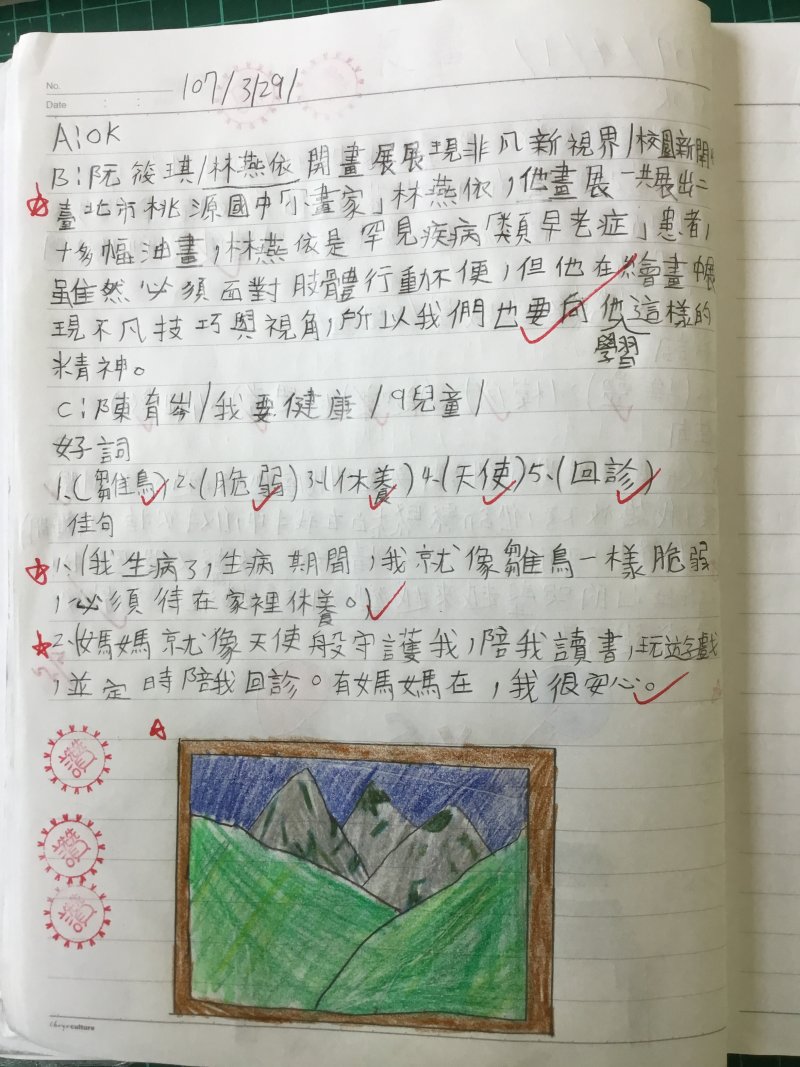 No.
Date : :
107/3/29/
A:OK
B:阮筱琪/林燕依開畫展展現非凡新視界/校園新聞
臺北市桃源國中「小畫家」林燕依,他畫展一共展出二
十多幅油畫,林燕依是罕見疾病「類早老症」患者,
雖然必須面對肢體行動不便,但他在繪畫中展
現不凡技巧與視角,所以我們也要向他這樣的
學習
精神。
C:陳育岑/我要健康/9兒童/
好詞
1、(雛鳥)2、(脆弱)3、(休養)4、(天使)5、(回診)
佳句
1、(我生病了,生病期間,我就像雛鳥一樣脆弱
,必須待在家裡休養。)
2、(媽媽就像天使般守護我,陪我讀書,玩遊戲
,並定時陪我回診。有媽媽在,我很安心。
讚
讚
讚